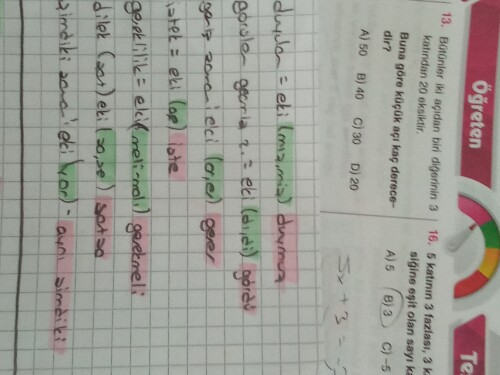 Öğreten
13. Bütünler iki açıdan biri diğerinin 3
katından 20 eksiktir.
Buna göre küçük açı kaç derece-
dir?
A) 50 B) 40 C) 30 D) 20
16. 5 katının 3 fazlası, 3 k
siğine eşit olan sayı ka
A) 5 B) 3 C) -5
5x + 3 =
Te
duyulan = eki (mız, miz) duymuz
görülen geçmiş z. = eki (dı, di) gördü
geniş zaman' eki (er, er) gezer
istek = eki (ae) iste
gereklilik = eki (meli-malı) gerekmeli
dilek (şart) eki (sa, se) satsa
şimdiki zaman' eki (yor) - aynı şimdiki